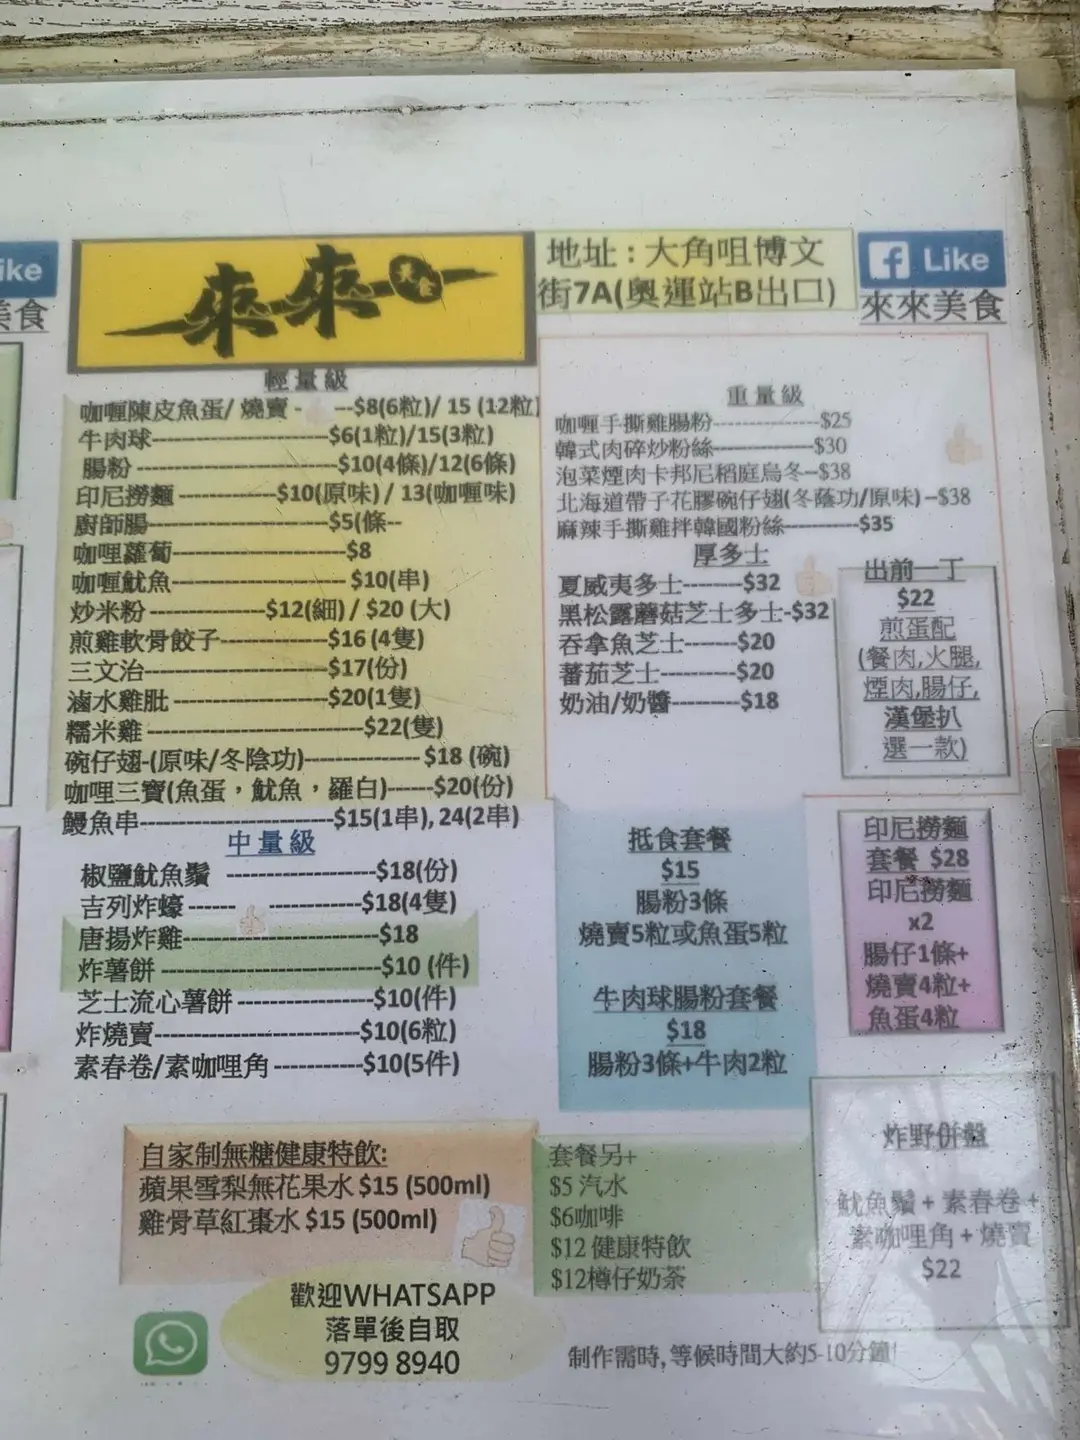 ike
美食
來來美食
地址：大角咀博文
街7A(奧運站B出口)
f Like
來來美食
輕量級
咖喱陳皮魚蛋/ 燒賣 - ---$8(6粒)/ 15 (12粒)
牛肉球--------------------------$6(1粒)/15(3粒)
腸粉------------------------------$10(4條)/12(6條)
印尼撈麵---------------$10(原味) / 13(咖喱味)
廚師腸---------------------------$5(條--
咖哩蘿蔔-------------------------$8
咖喱魷魚-------------------------- $10(串)
炒米粉-----------------$12(細) / $20 (大)
煎雞軟骨餃子----------------$16 (4隻)
三文治---------------------------$17(份)
滷水雞肶-----------------------$20(1隻)
糯米雞--------------------------------$22(隻)
碗仔翅-(原味/冬陰功)----------------- $18 (碗)
咖哩三寶(魚蛋，魷魚，羅白)------$20(份)
鰻魚串-----------------------------$15(1串), 24(2串)
中量級
椒鹽魷魚鬚 ----------------------$18(份)
吉列炸蠔------- --------------$18(4隻)
唐揚炸雞-----------------------------$18
炸薯餅--------------------------------$10 (件)
芝士流心薯餅--------------------$10(件)
炸燒賣------------------------------$10(6粒)
素春卷/素咖哩角-------------$10(5件)
重量級
咖喱手撕雞腸粉----------------$25
韓式肉碎炒粉絲---------------$30
泡菜煙肉卡邦尼稻庭烏冬--$38
北海道帶子花膠碗仔翅(冬蔭功/原味) –$38
麻辣手撕雞拌韓國粉絲-----------$35
厚多士
夏威夷多士--------$32
黑松露蘑菇芝士多士-$32
吞拿魚芝士--------$20
蕃茄芝士-----------$20
奶油/奶醬----------$18
出前一丁
$22
煎蛋配
(餐肉,火腿,
煙肉,腸仔,
漢堡扒
選一款)
抵食套餐
$15
腸粉3條
燒賣5粒或魚蛋5粒
牛肉球腸粉套餐
$18
腸粉3條+牛肉2粒
印尼撈麵
套餐 $28
印尼撈麵
x2
腸仔1條+
燒賣4粒+
魚蛋4粒
自家制無糖健康特飲:
蘋果雪梨無花果水 $15 (500ml)
雞骨草紅棗水 $15 (500ml)
套餐另+
$5 汽水
$6咖啡
$12 健康特飲
$12樽仔奶茶
炸野併盤
魷魚鬚 + 素春卷 +
素咖哩角 + 燒賣
$22
歡迎WHATSAPP
落單後自取
9799 8940
制作需時, 等候時間大約5-10分鐘!